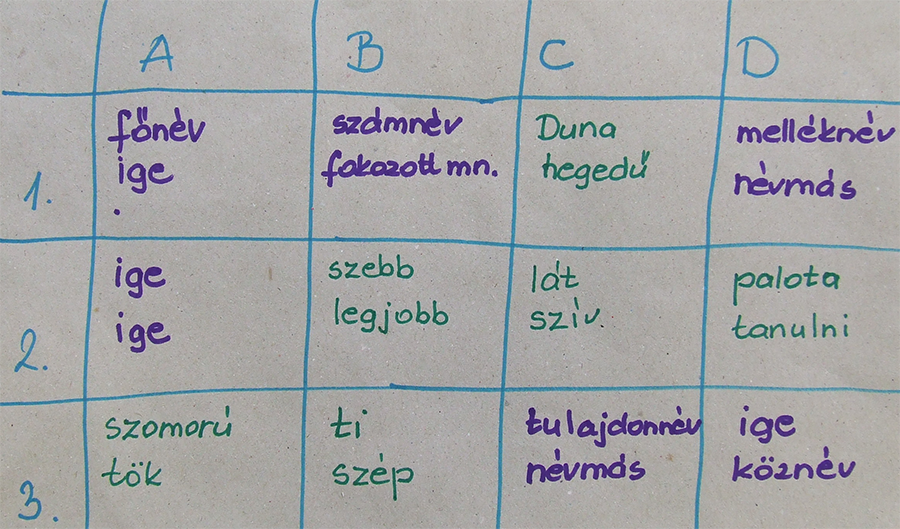 A B C D
1.
főnév
ige
.
számnév
fokozott mn.
Duna
hegedű
melléknév
névmás
2.
ige
ige
szebb
legjobb
lát
szív
palota
tanulni
3.
szomorú
tök
ti
szép
tulajdonnév
névmás
ige
köznév